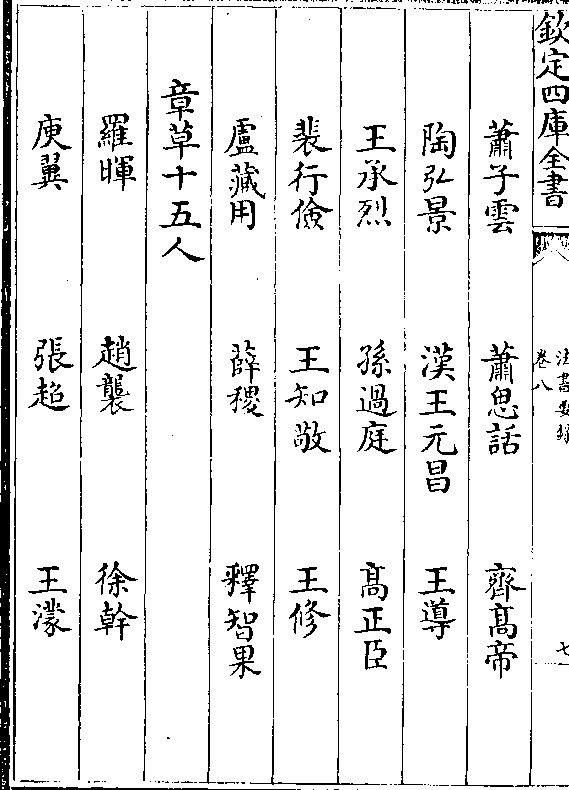 欽定四庫全書
法書要錄
卷八
七
蕭子雲　蕭思話　齊髙帝
陶弘景　漢王元昌　王導
王承烈　孫過庭　髙正臣
裴行儉　王知敬　王修
盧藏用　薛稷　釋智果
章草十五人
羅暉　趙襲　徐幹
庾翼　張超　王濛